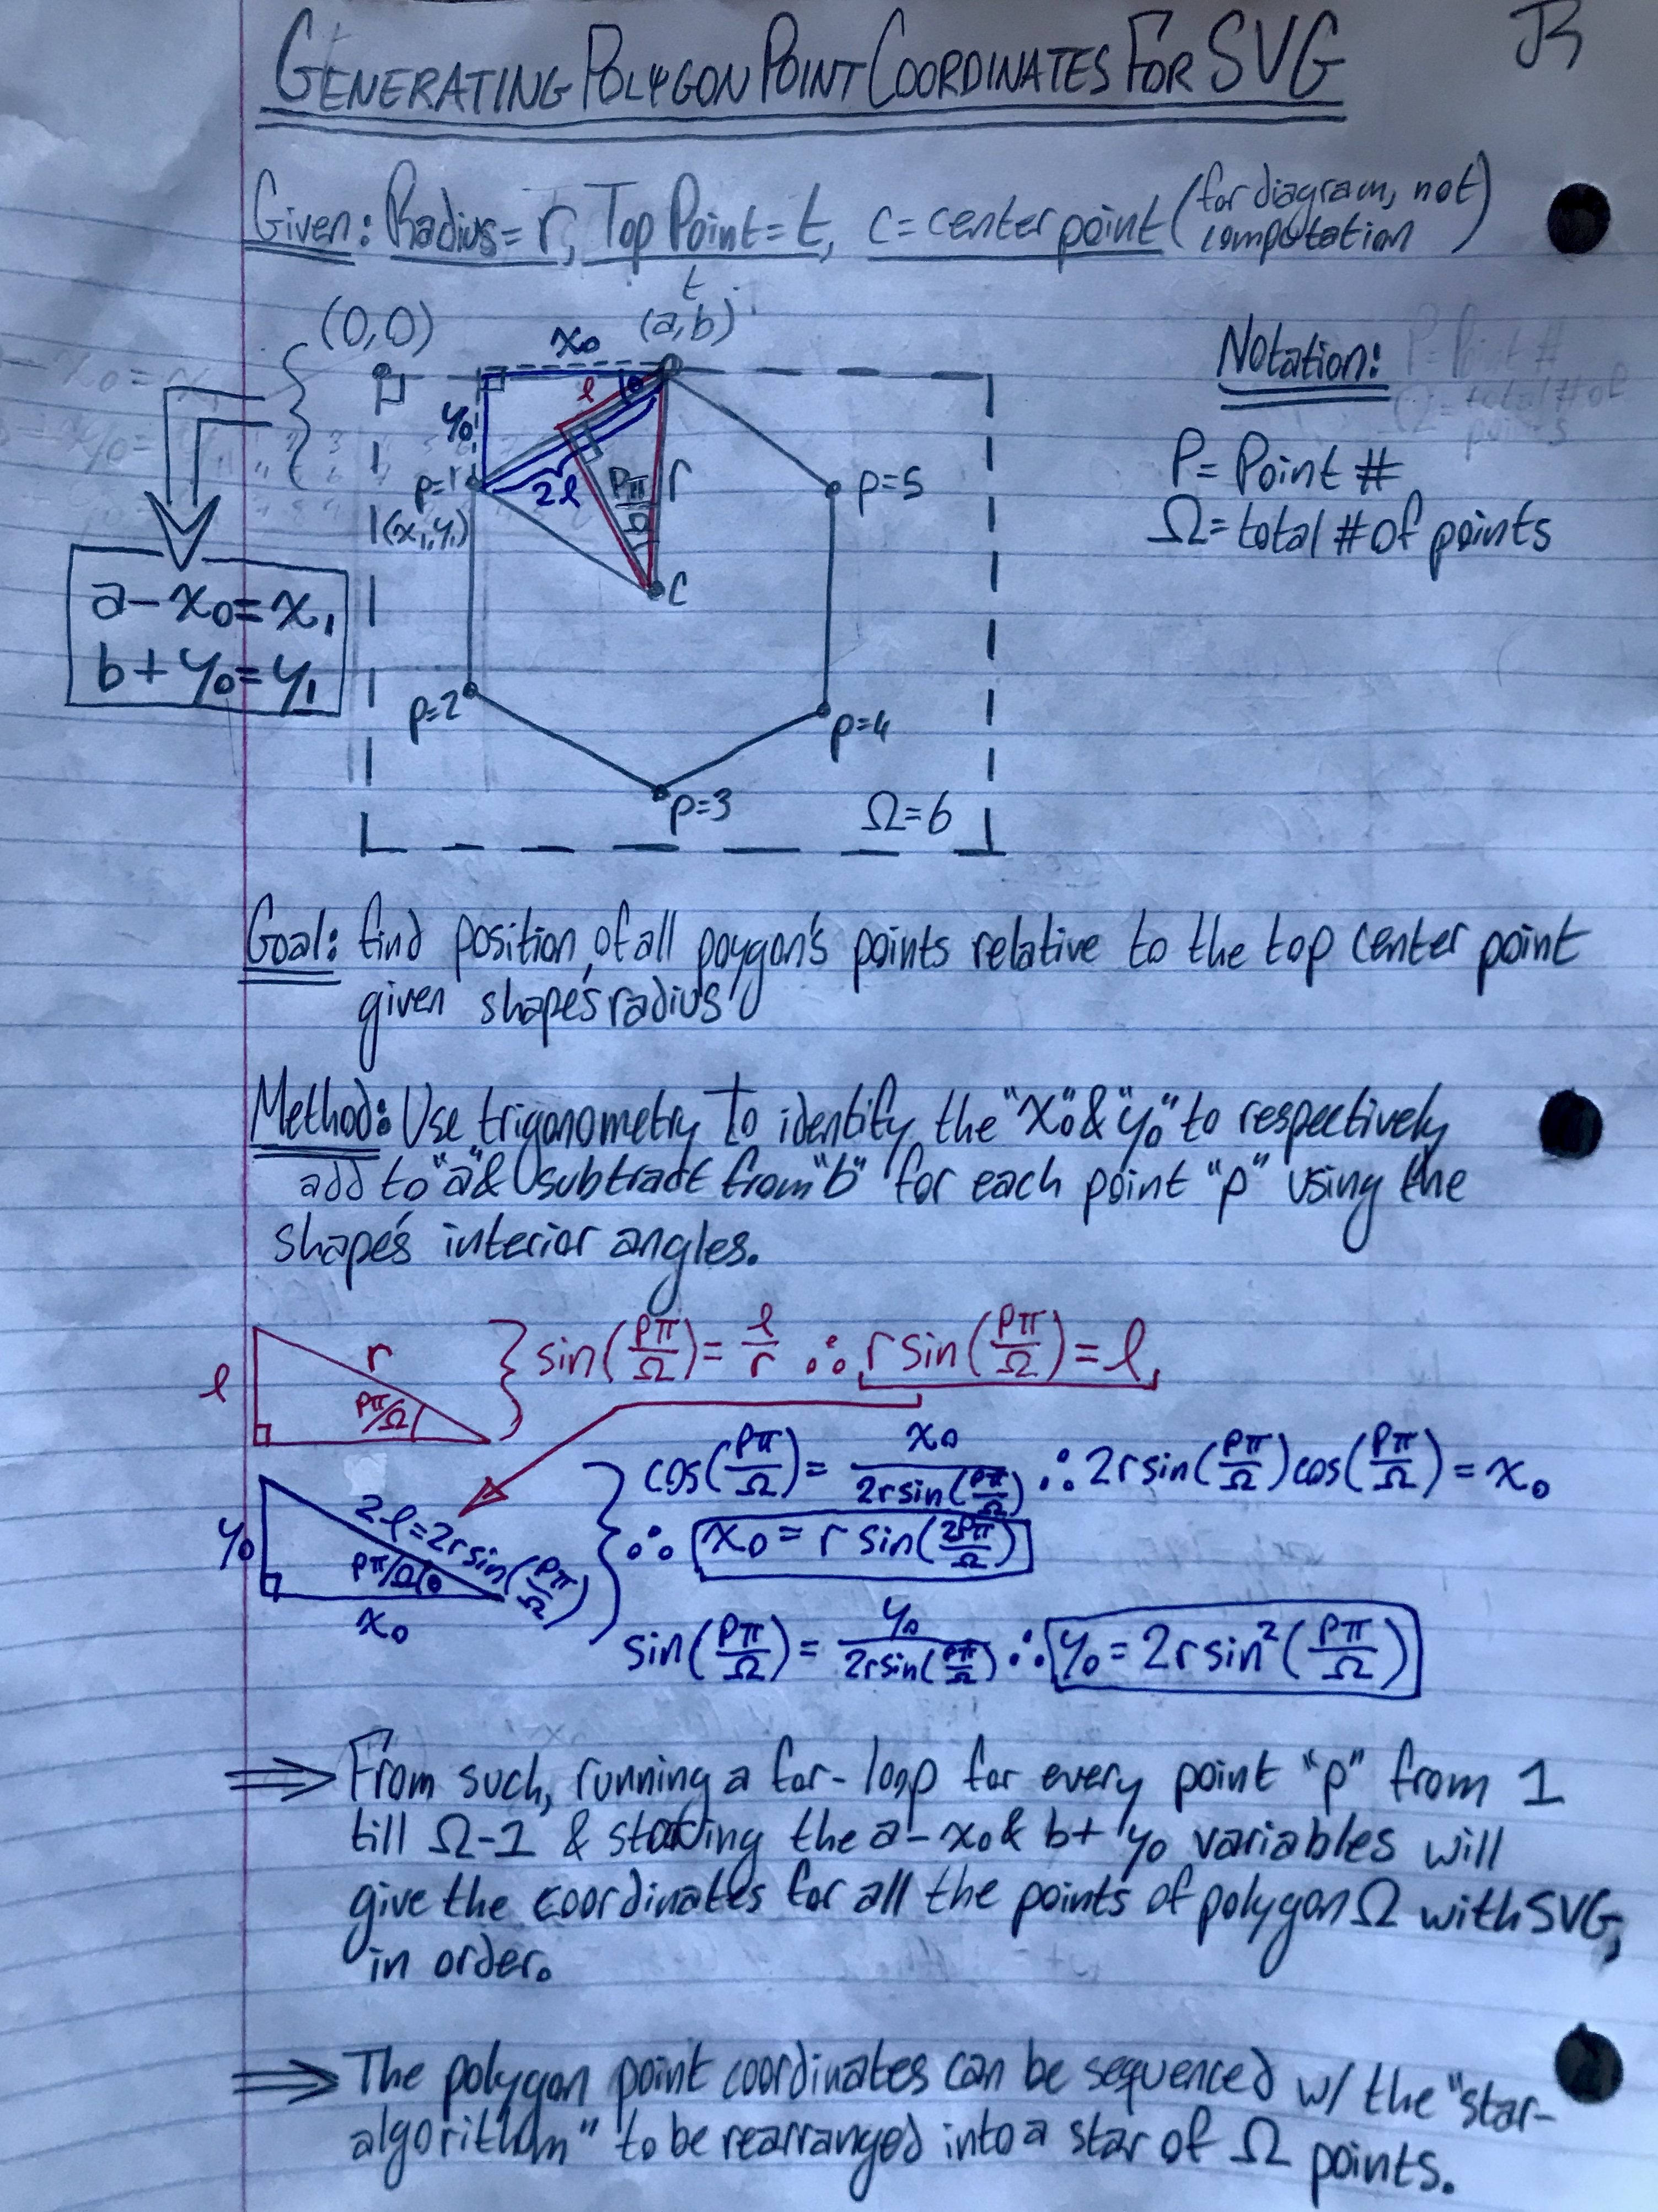 GENERATING POLYGON POINT COORDINATES FOR SVG
JR
Given: Radius = r, Top Point = t, c = center point (for diagram, not computation)
t
(0,0)
x₀
(a,b)
Notation:
P = Point #
Ω = total # of points
P = Point #
Ω = total # of points
y₀
l
θ
2l
pπ/Ω
r
c
p=1
(x₁,y₁)
p=5
a - x₀ = x₁
b + y₀ = y₁
p=2
p=4
p=3
Ω=6
Goal: find position, of all poygon's points relative to the top center point
given shape's radius
Method: Use trigonometry to identify the "x₀" & "y₀" to respectively
add to "a" & subtract from "b" for each point "p" using the
shape's interior angles.
l
r
pπ/Ω
sin(pπ/Ω) = l/r ∴ r sin(pπ/Ω) = l
y₀
2l = 2r sin(pπ/Ω)
pπ/Ω
θ
x₀
cos(pπ/Ω) = x₀/(2r sin(pπ/Ω)) ∴ 2r sin(pπ/Ω) cos(pπ/Ω) = x₀
∴ x₀ = r sin(2pπ/Ω)
sin(pπ/Ω) = y₀/(2r sin(pπ/Ω)) ∴ y₀ = 2r sin²(pπ/Ω)
⇒ From such, running a for-loop for every point "p" from 1
till Ω-1 & the a - x₀ & b + y₀ variables will
give the coordinates for all the points of polygon Ω with SVG,
in order.
⇒ The polygon point coordinates can be sequenced w/ the "star-
algorithm" to be rearranged into a star of Ω points.